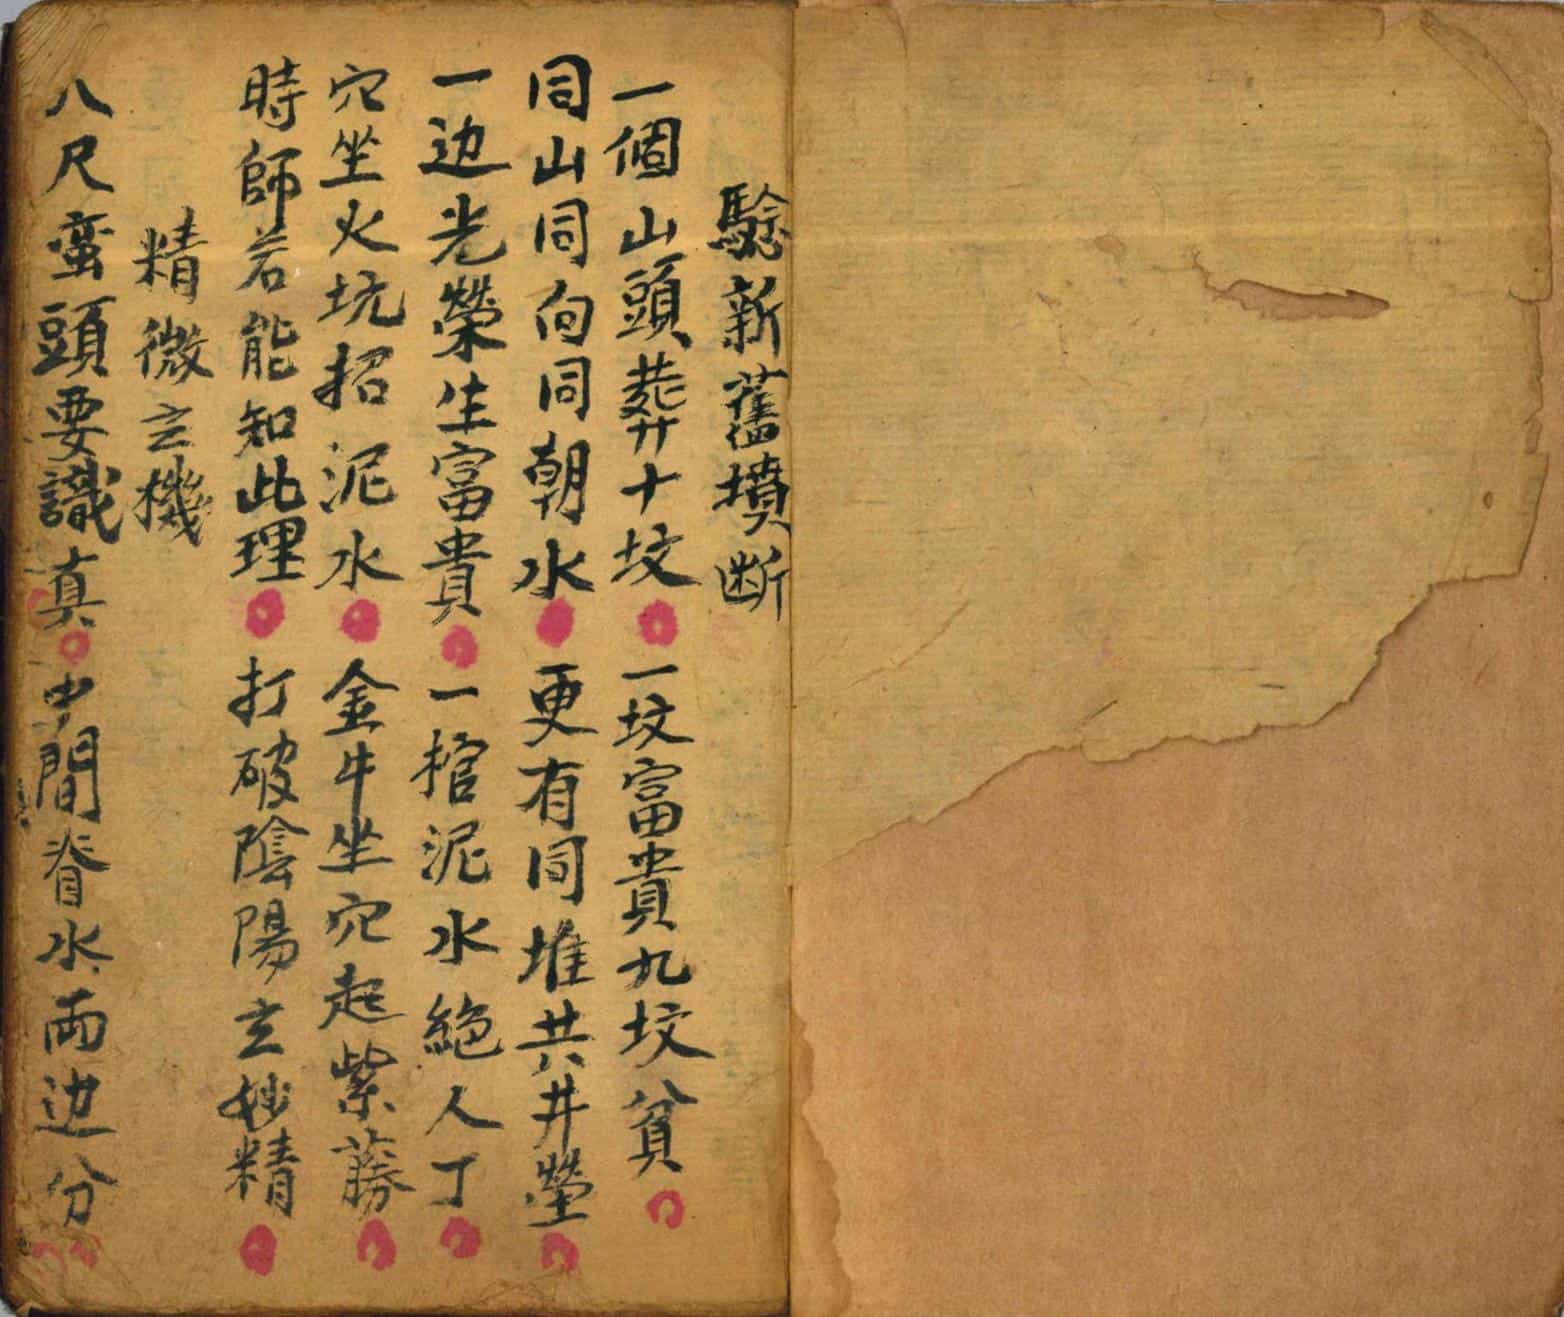 騐新舊墳断
一個山頭葬十坟一坟富貴九坟貧
同山同向同朝水更有同堆共井塋
一边光榮生富貴一棺泥水絶人丁
穴坐火坑招泥水金牛坐穴起紫藤
時師若能知此理打破陰陽玄妙精
精微玄機
八尺蛮頭要識真中間脊水両边分